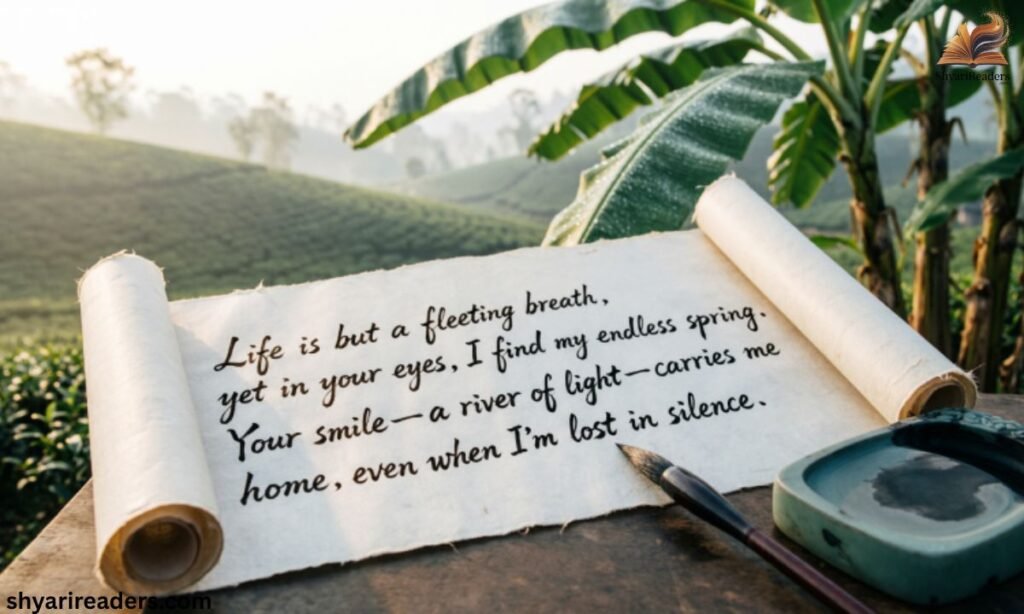 ShyariReaders
Life is but a fleeting breath,
yet in your eyes, I find my endless spring.
Your smile—a river of light—carries me
home, even when I'm lost in silence.
shyarireaders.com